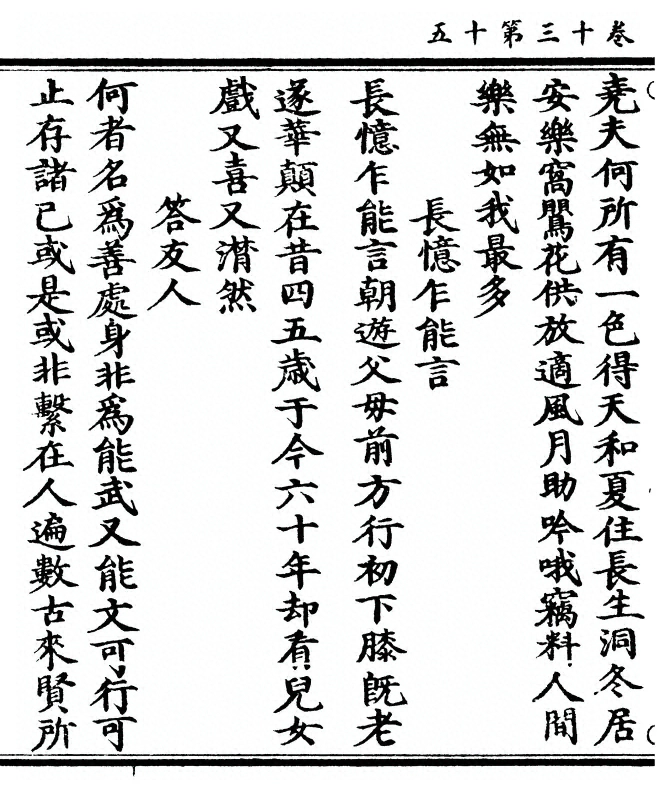 卷十三第十五
堯夫何所有一色得天和夏住長生洞冬居
安樂窩鸎花供放適風月助吟哦竊料人間
樂無如我最多
長憶乍能言
長憶乍能言朝遊父母前方行初下膝旣老
遂華顛在昔四五歲于今六十年却看兒女
戲又喜又潸然
答友人
何者名爲善處身非爲能武又能文可行可
止存諸己或是或非繫在人遍數古來賢所